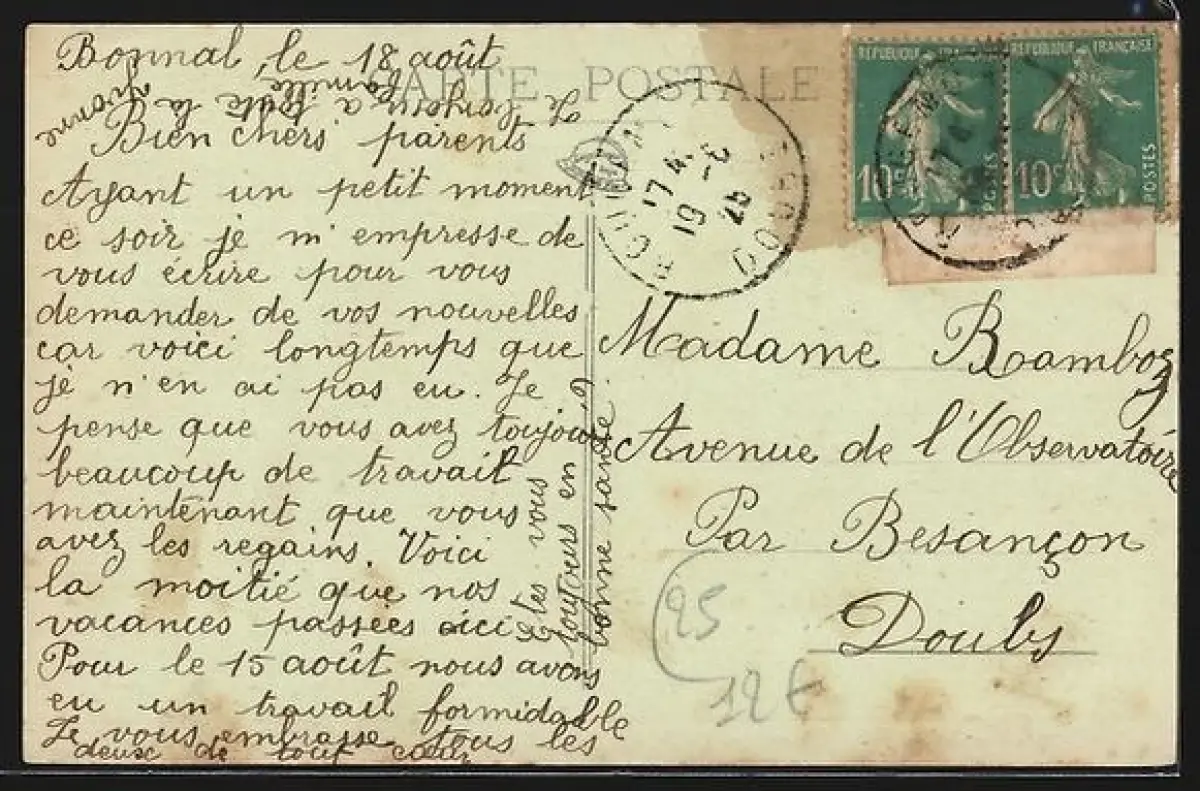 Bonnal, le 18 août
Bien chers parents
Ayant un petit moment
ce soir je m'empresse de
vous écrire pour vous
demander de vos nouvelles
car voici longtemps que
je n'en ai pas eu. Je
pense que vous avez toujours
beaucoup de travail
maintenant que vous
avez les regains. Voici
la moitié que nos
vacances passées ici
Pour le 15 août nous avons
eu un travail formidable
Je vous embrasse tous les
deux de tout cœur
Yvonne
le bonjour à toute la
famille
Etes vous
toujours en
bonne santé ?
CARTE POSTALE
REPUBLIQUE FRANÇAISE
10c POSTES
REPUBLIQUE FRANÇAISE
10c POSTES
17
19 - 8
25
DOUBS
Madame Bramboz
Avenue de l'Observatoire
Par Besançon
Doubs
25
12 €